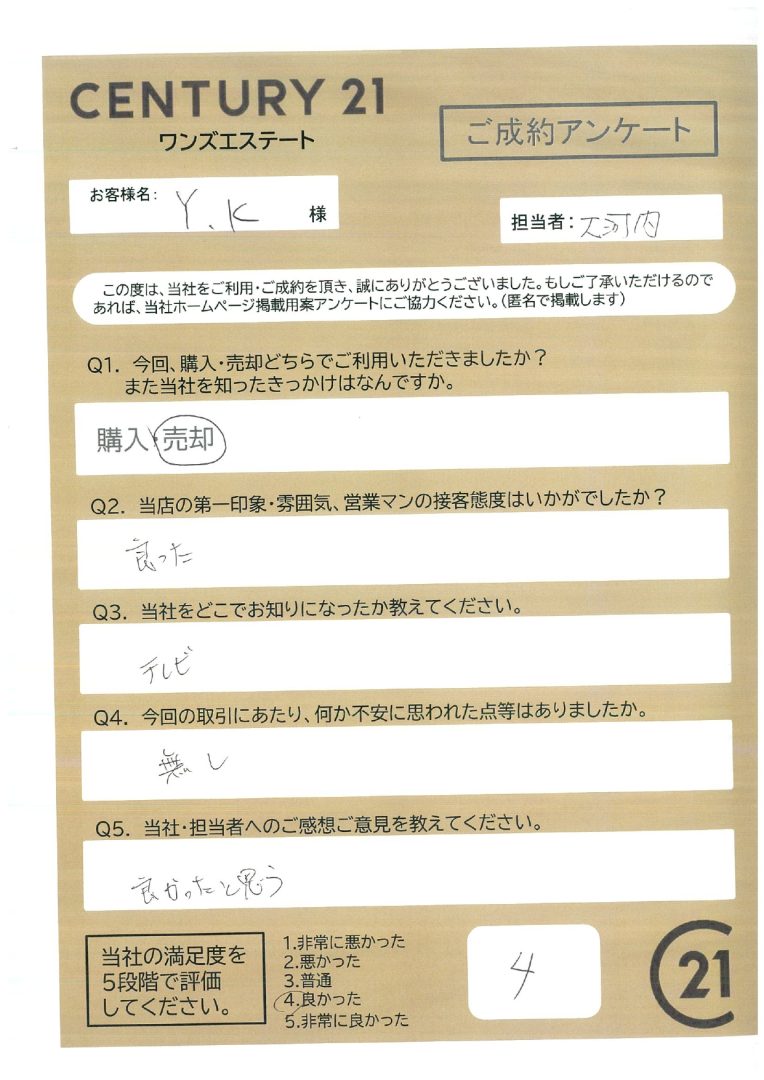 CENTURY 21
ワンズエステート
ご成約アンケート
お客様名: Y.K 様
担当者: 大河内
この度は、当社をご利用・ご成約を頂き、誠にありがとうございました。もしご了承いただけるので
あれば、当社ホームページ掲載用案アンケートにご協力ください。(匿名で掲載します)
Q1. 今回、購入・売却どちらでご利用いただきましたか?
また当社を知ったきっかけはなんですか。
購入・売却
Q2. 当店の第一印象・雰囲気、営業マンの接客態度はいかがでしたか?
良った
Q3. 当社をどこでお知りになったか教えてください。
テレビ
Q4. 今回の取引にあたり、何か不安に思われた点等はありましたか。
無し
Q5. 当社・担当者へのご感想ご意見を教えてください。
良かったと思う
当社の満足度を
5段階で評価
してください。
1.非常に悪かった
2.悪かった
3.普通
4.良かった
5.非常に良かった
4
C21